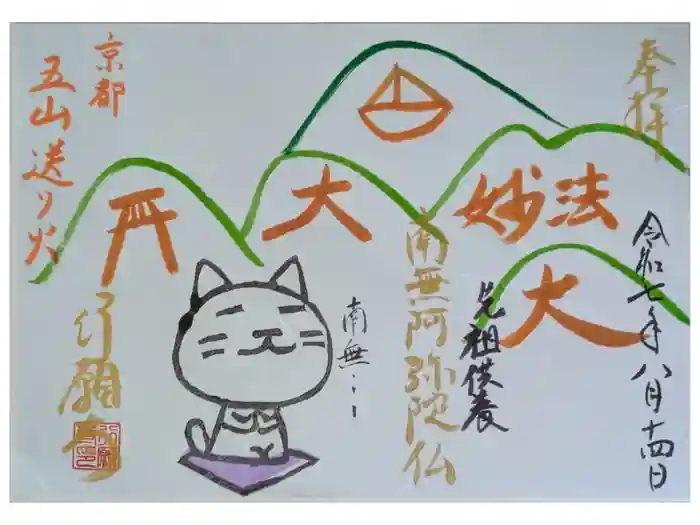 奉拝
令和七年八月十四日
先祖供養
南無阿弥陀仏
南無…
妙法
大
大
京都
五山送り火
行願寺